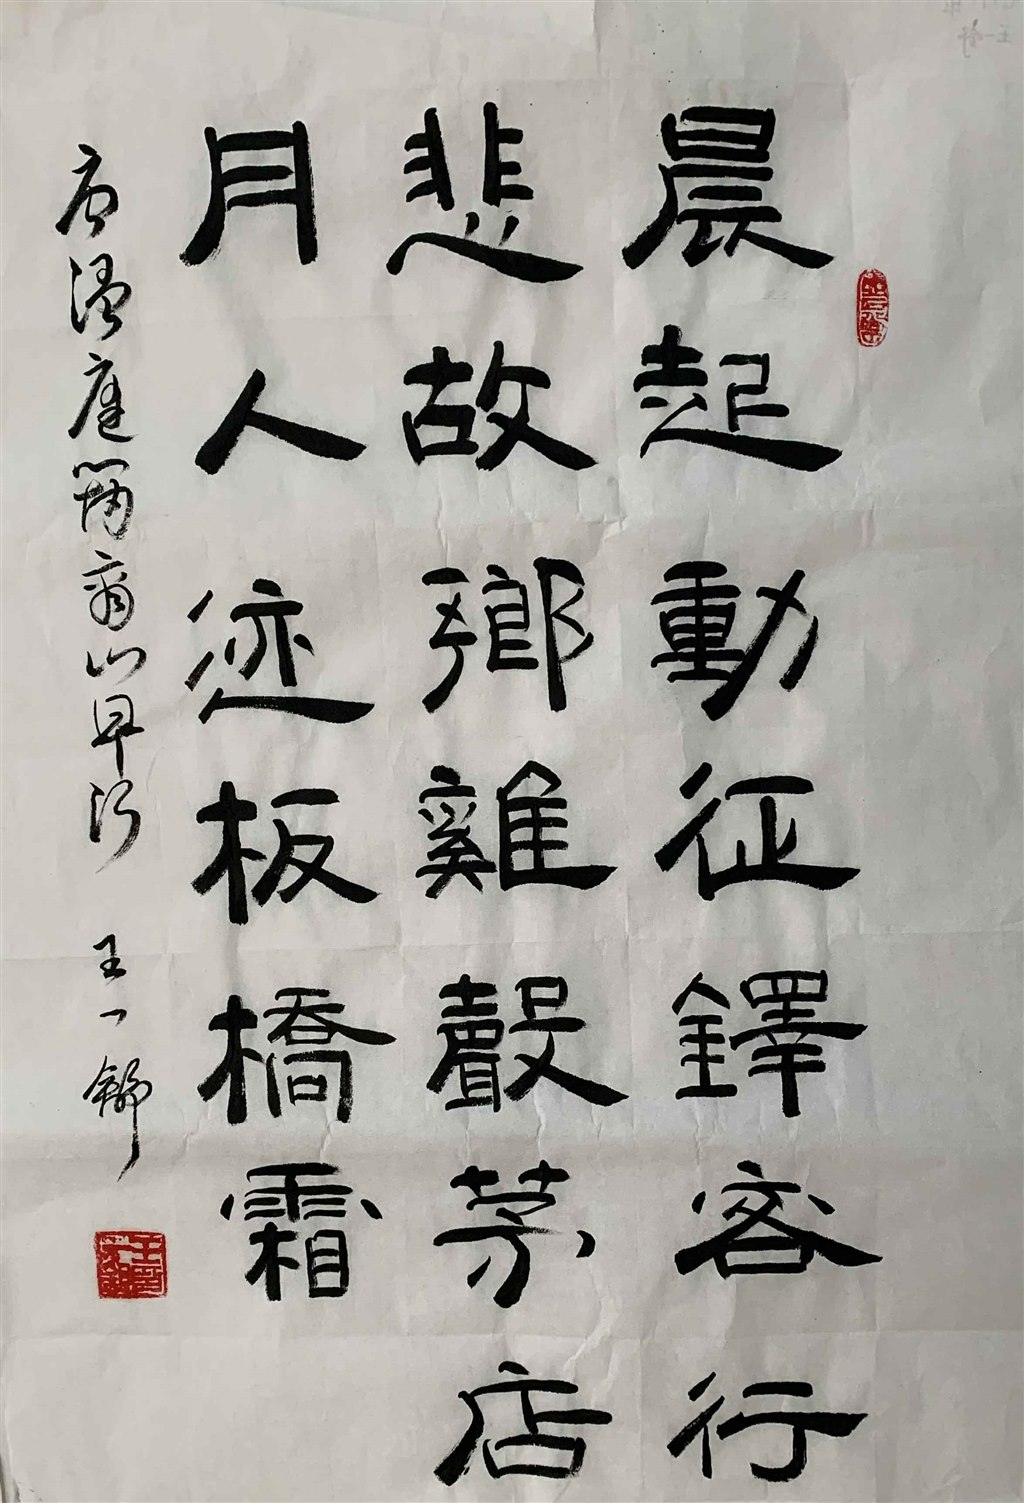 晨起動征鐸客行
悲故鄉雞聲茅店
月人迹板橋霜
唐溫庭筠商山早行 王一舒